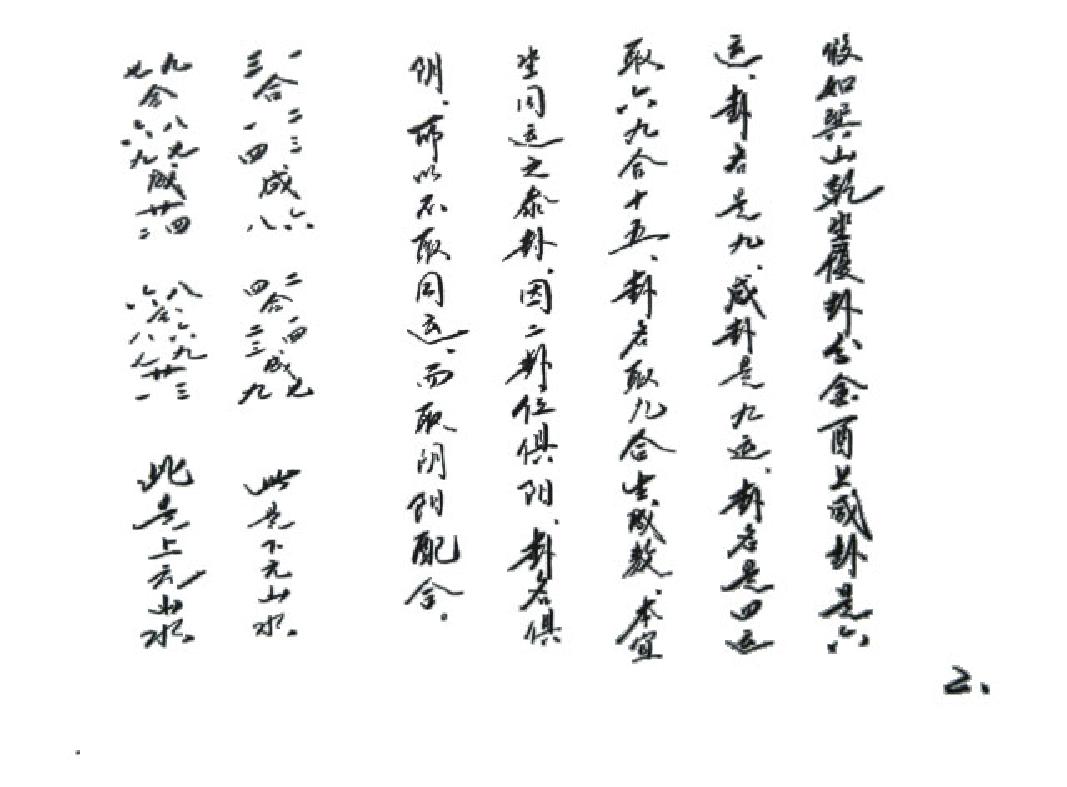 假如巽山乾坐履卦分金酉上咸卦是六
运、卦名是九、咸卦是九运、卦名是四运
取六九合十五、卦名取九合生成数、本宜
坐同运之泰卦、因二卦位俱阳、卦名俱
阴、所以不取同运、而取阴阳配合。
一三合二三一四成六八 二四合一四二三成七九 此是下元山水。
九七合八九六九成廿四二 八六合六九八七廿三一 此是上元山水。
2、